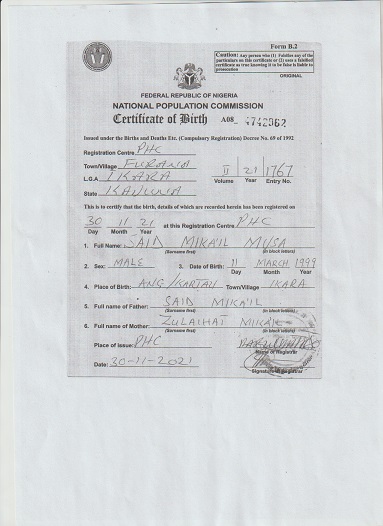 Form B.2
Caution: Any person who (1) Falsifies any of the
particulars on this certificate or (2) uses a falsified
certificate as true knowing it to be false is liable to
prosecution
ORIGINAL
FEDERAL REPUBLIC OF NIGERIA
NATIONAL POPULATION COMMISSION
Certificate of Birth A08_ 4742962
Issued under the Births and Deaths Etc. (Compulsory Registration) Decree No. 69 of 1992
Registration Centre PHC
Town/Village
L.G.A IKARA
State
II 21 1767
Volume Year Entry No.
This is to certify that the birth, details of which are recorded herein has been registered on
30 11 21 at this Registration Centre PHC
Day Month Year
1. Full Name: SAID MIKA'IL MUSA
(Surname first) (in block letters)
2. Sex: MALE 3. Date of Birth: 11 MARCH 1999
Day Month Year
4. Place of Birth: ANG/KARTAU Town/Village IKARA
5. Full name of Father: SAID MIKA'IL
(Surname first) (in block letters)
6. Full name of Mother: ZULAIHAT MIKA'IL
(Surname first) (in block letters)
Place of issue: PHC
Name of Registrar
Date: 30-11-2021
Signature of Registrar